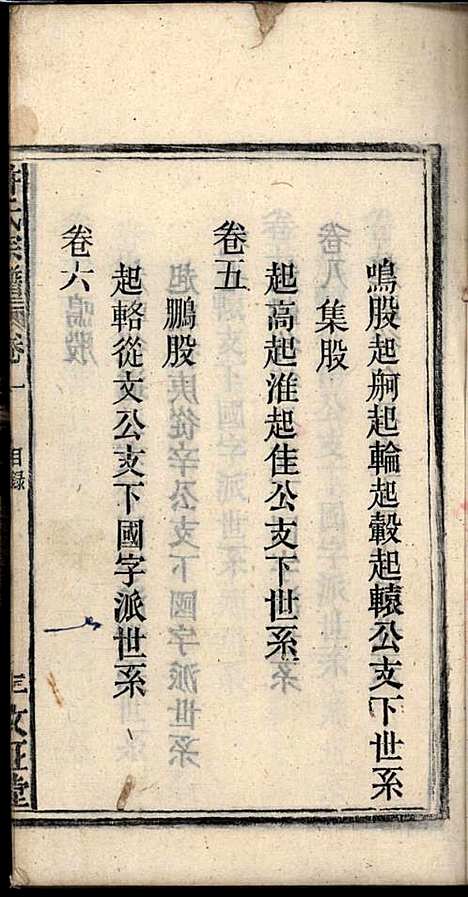 鳴股起舸起輪起轂起轅公支下世系
集股
起高起淮起佳公支下世系
卷五
鵬股
起輅從文公支下國字派世系
卷六
許氏宗譜 卷一 目錄